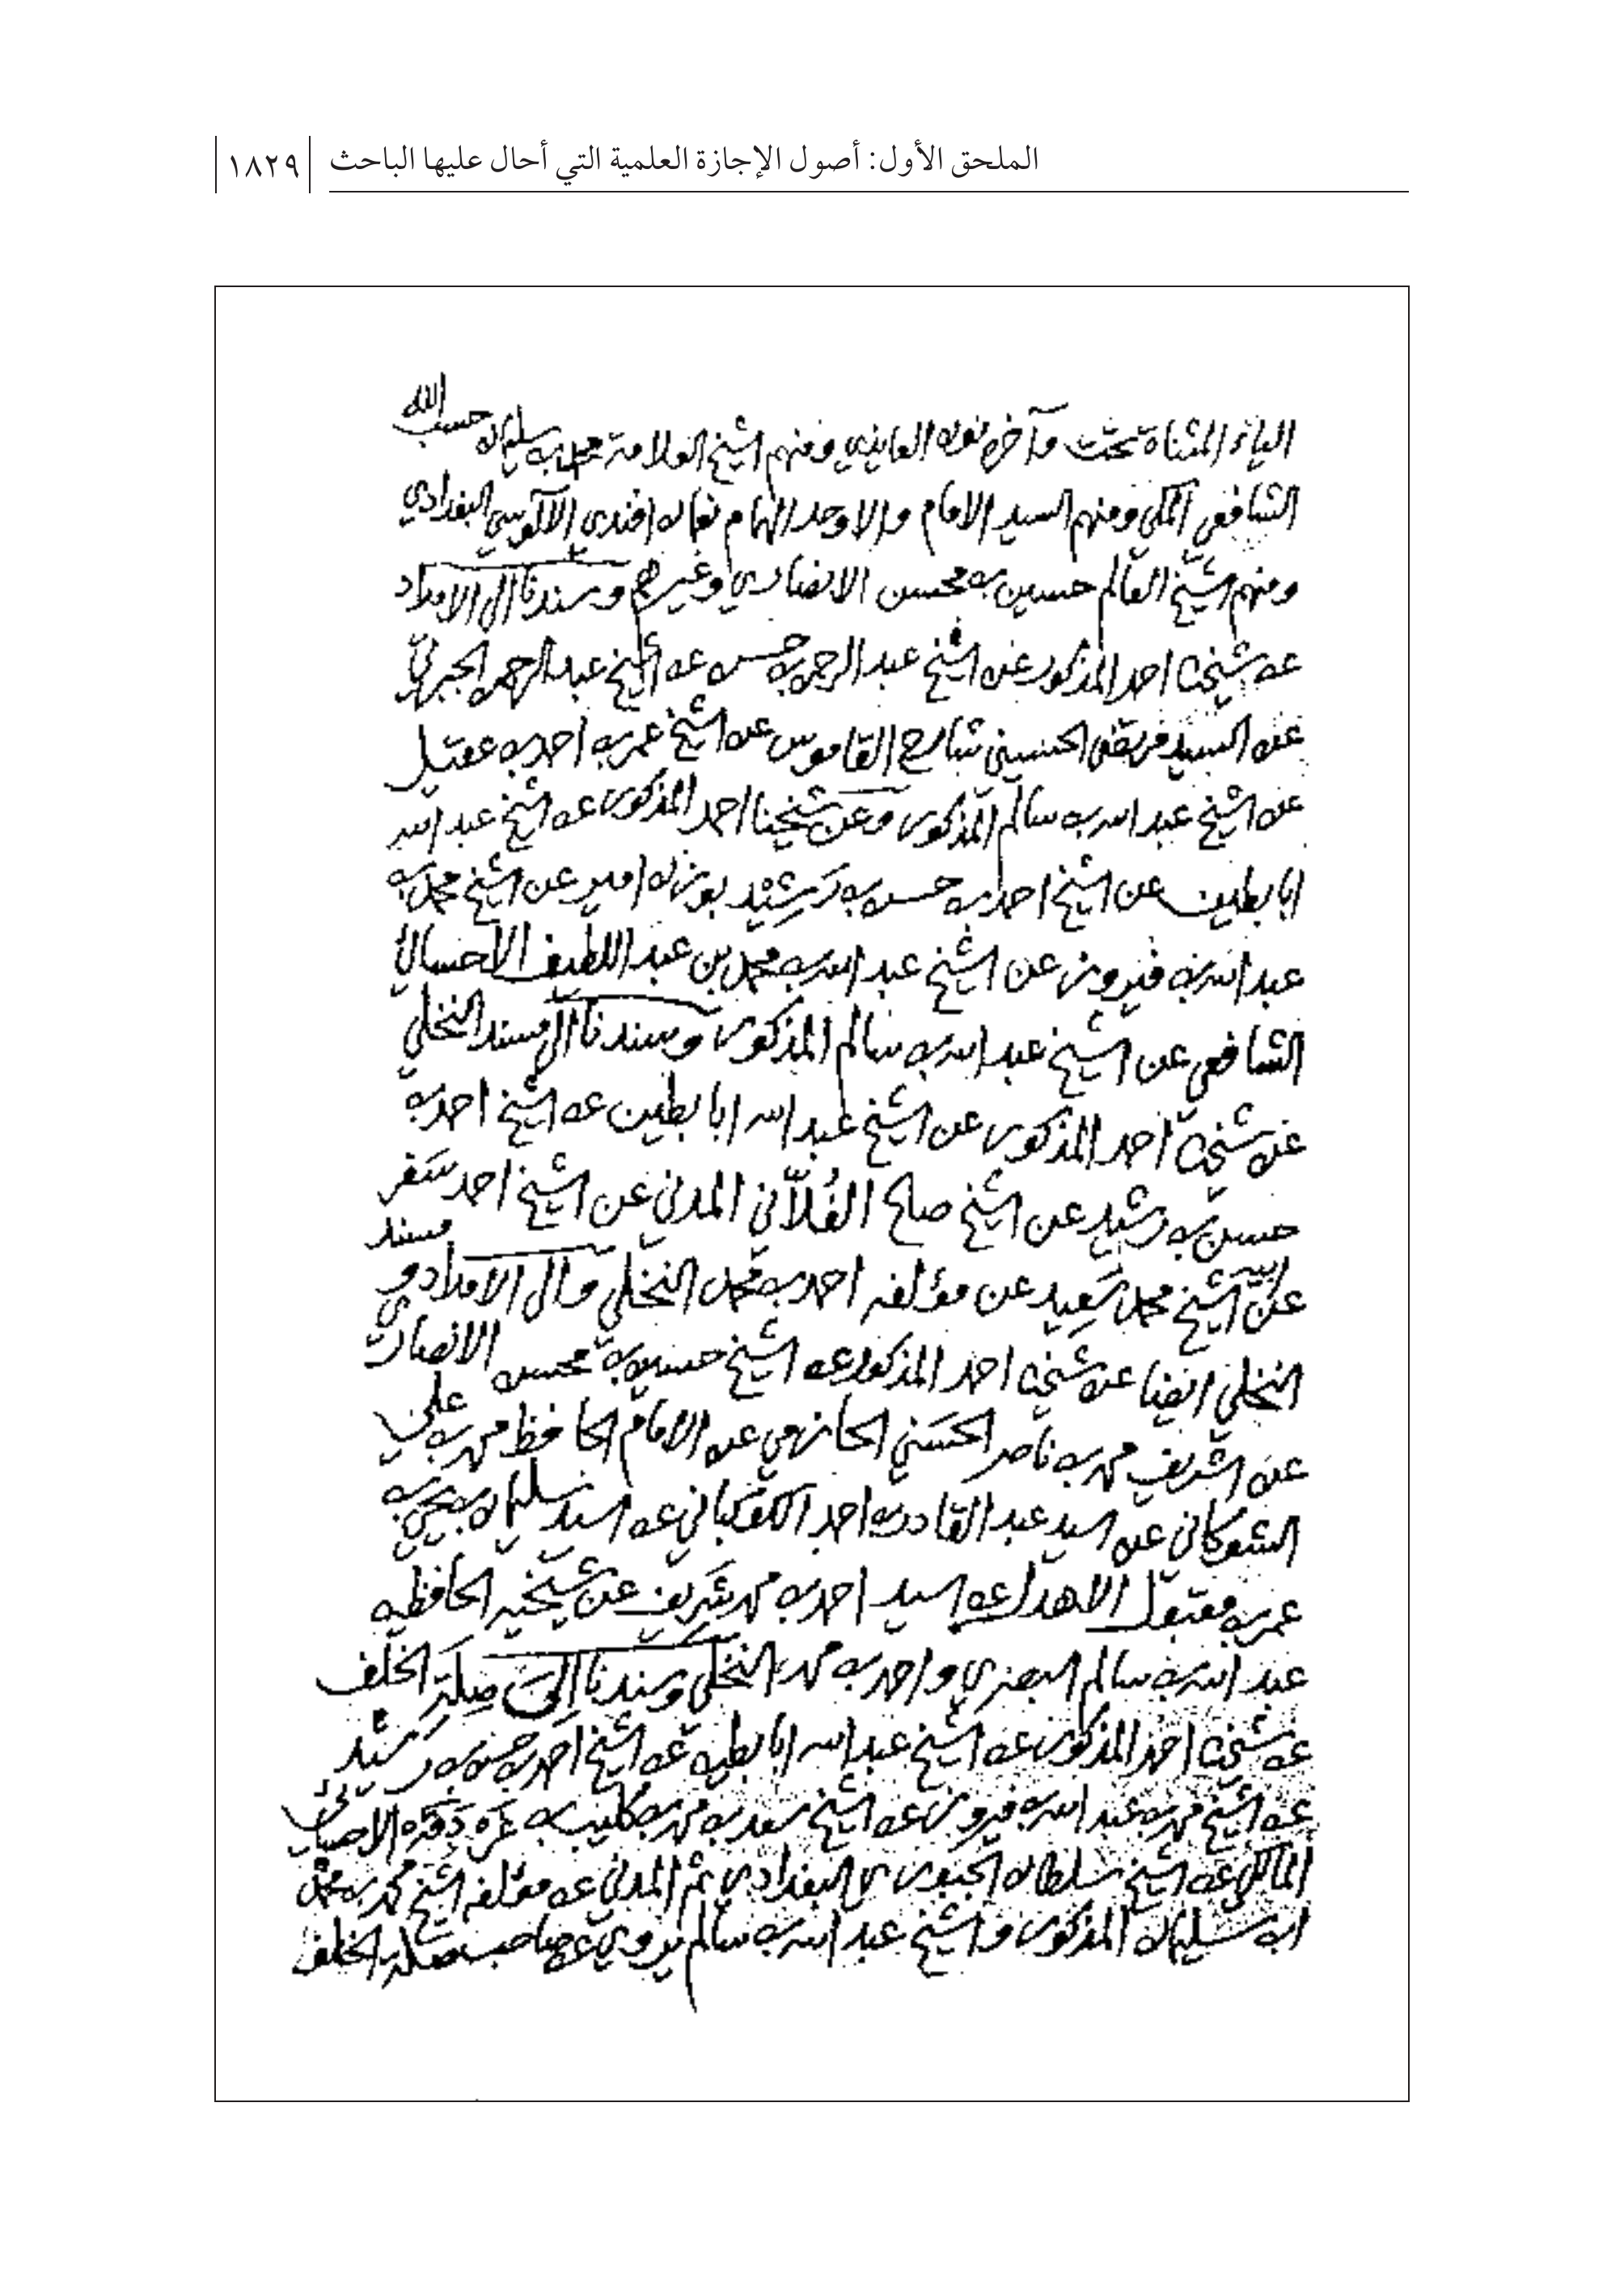 الملحق الأول: أصول الإجازة العلمية التي أحال عليها الباحث
١٨٢٩
الياء المثناة تحت وآخره نون العايذي ومنهم الشيخ العلامة محمد بن سليمان حسب الله
الشافعي المكي ومنهم السيد الامام والاوحد الهمام نعمان افندي الآلوسي البغدادي
ومنهم الشيخ العالم حسين بن محسن الانصاري وغيرهم وسندنا الى الامداد
عن شيخنا احمد المذكور عن الشيخ عبد الرحمن بن حسن عن الشيخ عبد الرحمن الجبرتي
عن السيد مرتضى الحسيني شارح القاموس عن الشيخ عمر بن احمد بن عقيل
عن الشيخ عبد الله بن سالم المذكور وعن شيخنا احمد المذكور عن الشيخ عبد الله
ابا بطين عن الشيخ احمد بن حسن بن رشيد عن الشيخ محمد بن
عبد الله بن فيروز عن الشيخ عبد الله بن محمد بن عبد اللطيف الاحسائي
الشافعي عن الشيخ عبد الله بن سالم المذكور وسندنا الى مسند النخلي
عن شيخنا احمد المذكور عن الشيخ عبد الله ابا بطين عن الشيخ احمد بن
حسن بن رشيد عن الشيخ صالح الفُلاّني المدني عن الشيخ محمد سعيد سفر
عن الشيخ محمد سعيد عن مؤلفه احمد بن محمد النخلي والى الامداد و مسند
النخلي ايضا عن شيخنا احمد المذكور عن الشيخ حسين بن محسن الانصاري
عن الشريف محمد بن ناصر الحسني الحازمي عن الامام الحافظ محمد بن علي
الشوكاني عن السيد عبد القادر بن احمد الكوكباني عن السيد سليمان بن يحيى بن
عمر مقبول الاهدل عن السيد احمد بن محمد شريف عن شيخيه الحافظين
عبد الله بن سالم البصري واحمد بن محمد النخلي وسندنا الى صلة الخلف
عن شيخنا احمد المذكور عن الشيخ عبد الله ابا بطين عن الشيخ احمد بن حسن بن رشيد
عن الشيخ محمد بن عبد الله بن فيروز عن الشيخ سعد بن محمد بن كليب بن
المالكي عن الشيخ سلطان الجبوري البغدادي ثم المدني عن مؤلفه الشيخ محمد بن محمد
ابن سليمان المذكور والشيخ عبد الله بن سالم يروي عن صاحب صلة الخلف